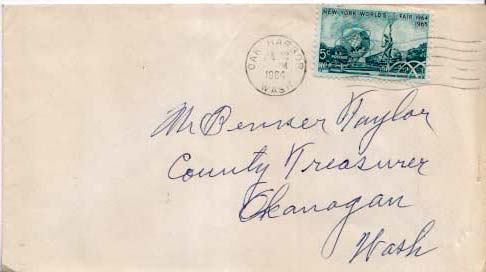 NEW YORK WORLD'S FAIR 1964
1965
5c
OAK HARBOR
PM
1964
WASH
Mr Benser Taylor
County Treasurer
Okanogan
Wash